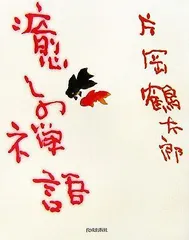 片岡鶴太郎
癒しの禅語